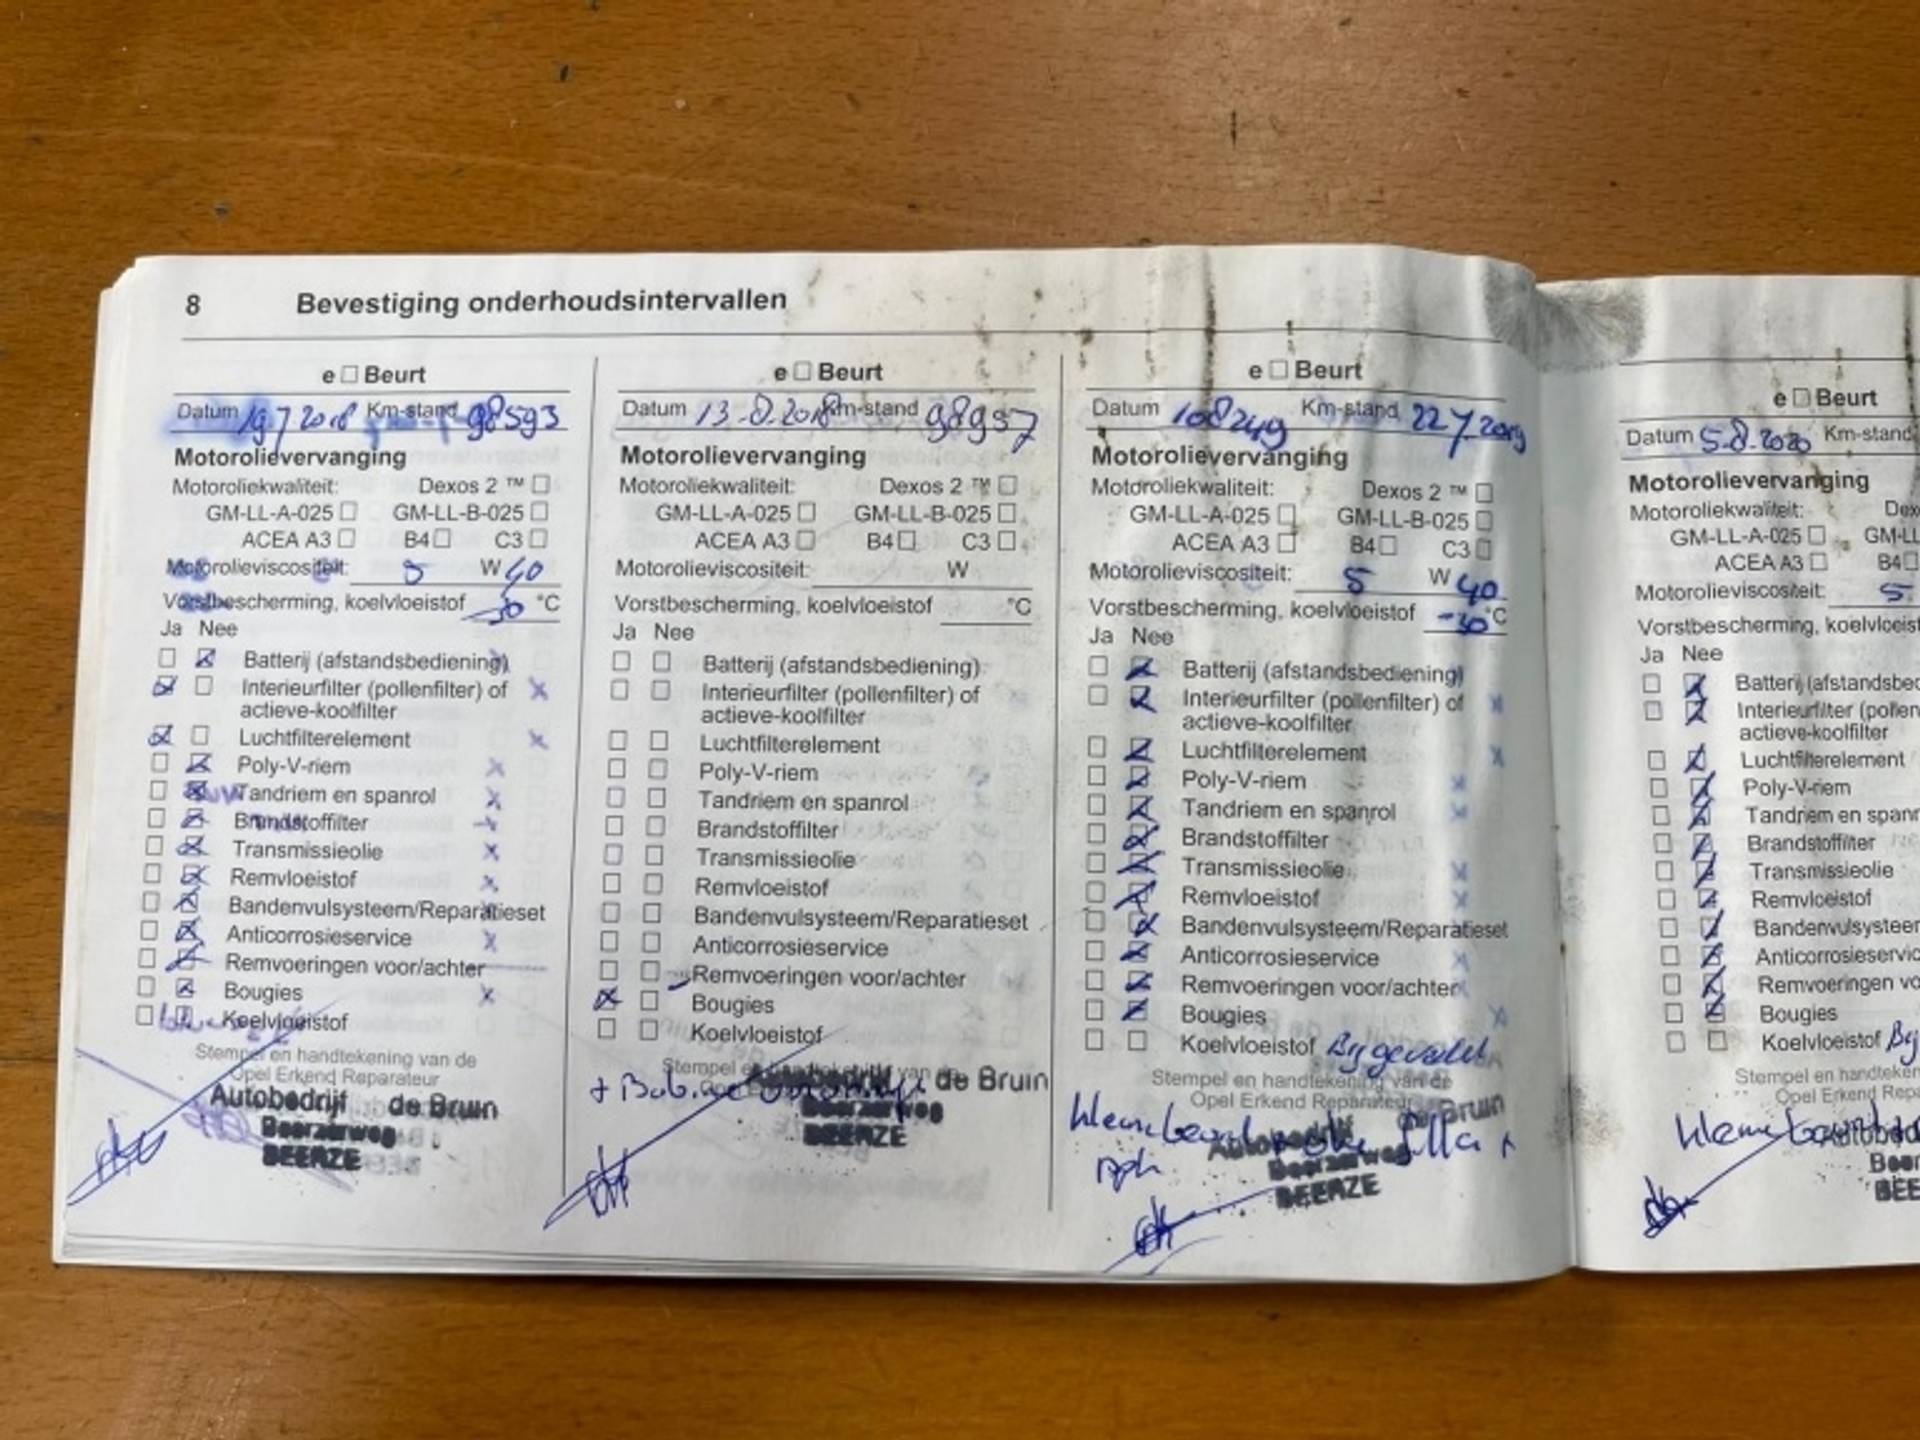 8 Bevestiging onderhoudsintervallen
e □ Beurt
Datum 19 7 2018 Km-stand 98593
Motorolievervanging
Motoroliekwaliteit: Dexos 2 ™ □
GM-LL-A-025 □ GM-LL-B-025 □
ACEA A3 □ B4 □ C3 □
Motorolieviscositeit: 5 W 40
Vorstbescherming, koelvloeistof -30 °C
Ja Nee
Batterij (afstandsbediening)
Interieurfilter (pollenfilter) of
actieve-koolfilter
Luchtfilterelement
Poly-V-riem
Tandriem en spanrol
Brandstoffilter
Transmissieolie
Remvloeistof
Bandenvulsysteem/Reparatieset
Anticorrosieservice
Remvoeringen voor/achter
Bougies
Koelvloeistof
Stempel en handtekening van de
Opel Erkend Reparateur
Autobedrijf de Bruin
Beerzerweg
BEERZE
e □ Beurt
Datum 13-8-2018 Km-stand 98957
Motorolievervanging
Motoroliekwaliteit: Dexos 2 ™ □
GM-LL-A-025 □ GM-LL-B-025 □
ACEA A3 □ B4 □ C3 □
Motorolieviscositeit: W
Vorstbescherming, koelvloeistof °C
Ja Nee
Batterij (afstandsbediening)
Interieurfilter (pollenfilter) of
actieve-koolfilter
Luchtfilterelement
Poly-V-riem
Tandriem en spanrol
Brandstoffilter
Transmissieolie
Remvloeistof
Bandenvulsysteem/Reparatieset
Anticorrosieservice
Remvoeringen voor/achter
Bougies
Koelvloeistof
Stempel en van de
+ de Bruin
Beerzerweg
BEERZE
e □ Beurt
Datum 108249 Km-stand 22 7 2019
Motorolievervanging
Motoroliekwaliteit: Dexos 2 ™ □
GM-LL-A-025 □ GM-LL-B-025 □
ACEA A3 □ B4 □ C3 □
Motorolieviscositeit: 5 W 40
Vorstbescherming, koelvloeistof -30 °C
Ja Nee
Batterij (afstandsbediening)
Interieurfilter (pollenfilter) of
actieve-koolfilter
Luchtfilterelement
Poly-V-riem
Tandriem en spanrol
Brandstoffilter
Transmissieolie
Remvloeistof
Bandenvulsysteem/Reparatieset
Anticorrosieservice
Remvoeringen voor/achter
Bougies
Koelvloeistof Bijgevuld
Stempel en handtekening van de
Opel Erkend Reparateur
de Bruin
Kleine beurt
Autobedrijf
Beerzerweg
apk
BEERZE
e □ Beurt
Datum 5-8-2020 Km-stand
Motorolievervanging
Motoroliekwaliteit: Dex
GM-LL-A-025 □ GM-LL
ACEA A3 □ B4 □
Motorolieviscositeit: 5
Vorstbescherming, koelvloeist
Ja Nee
Batterij (afstandsbed
Interieurfilter (pollen
actieve-koolfilter
Luchtfilterelement
Poly-V-riem
Tandriem en spanr
Brandstoffilter
Transmissieolie
Remvloeistof
Bandenvulsysteem
Anticorrosieservic
Remvoeringen vo
Bougies
Koelvloeistof Bij
Stempel en handteken
Opel Erkend Repa
Kleine beurt
Autobed
Beer
BEE